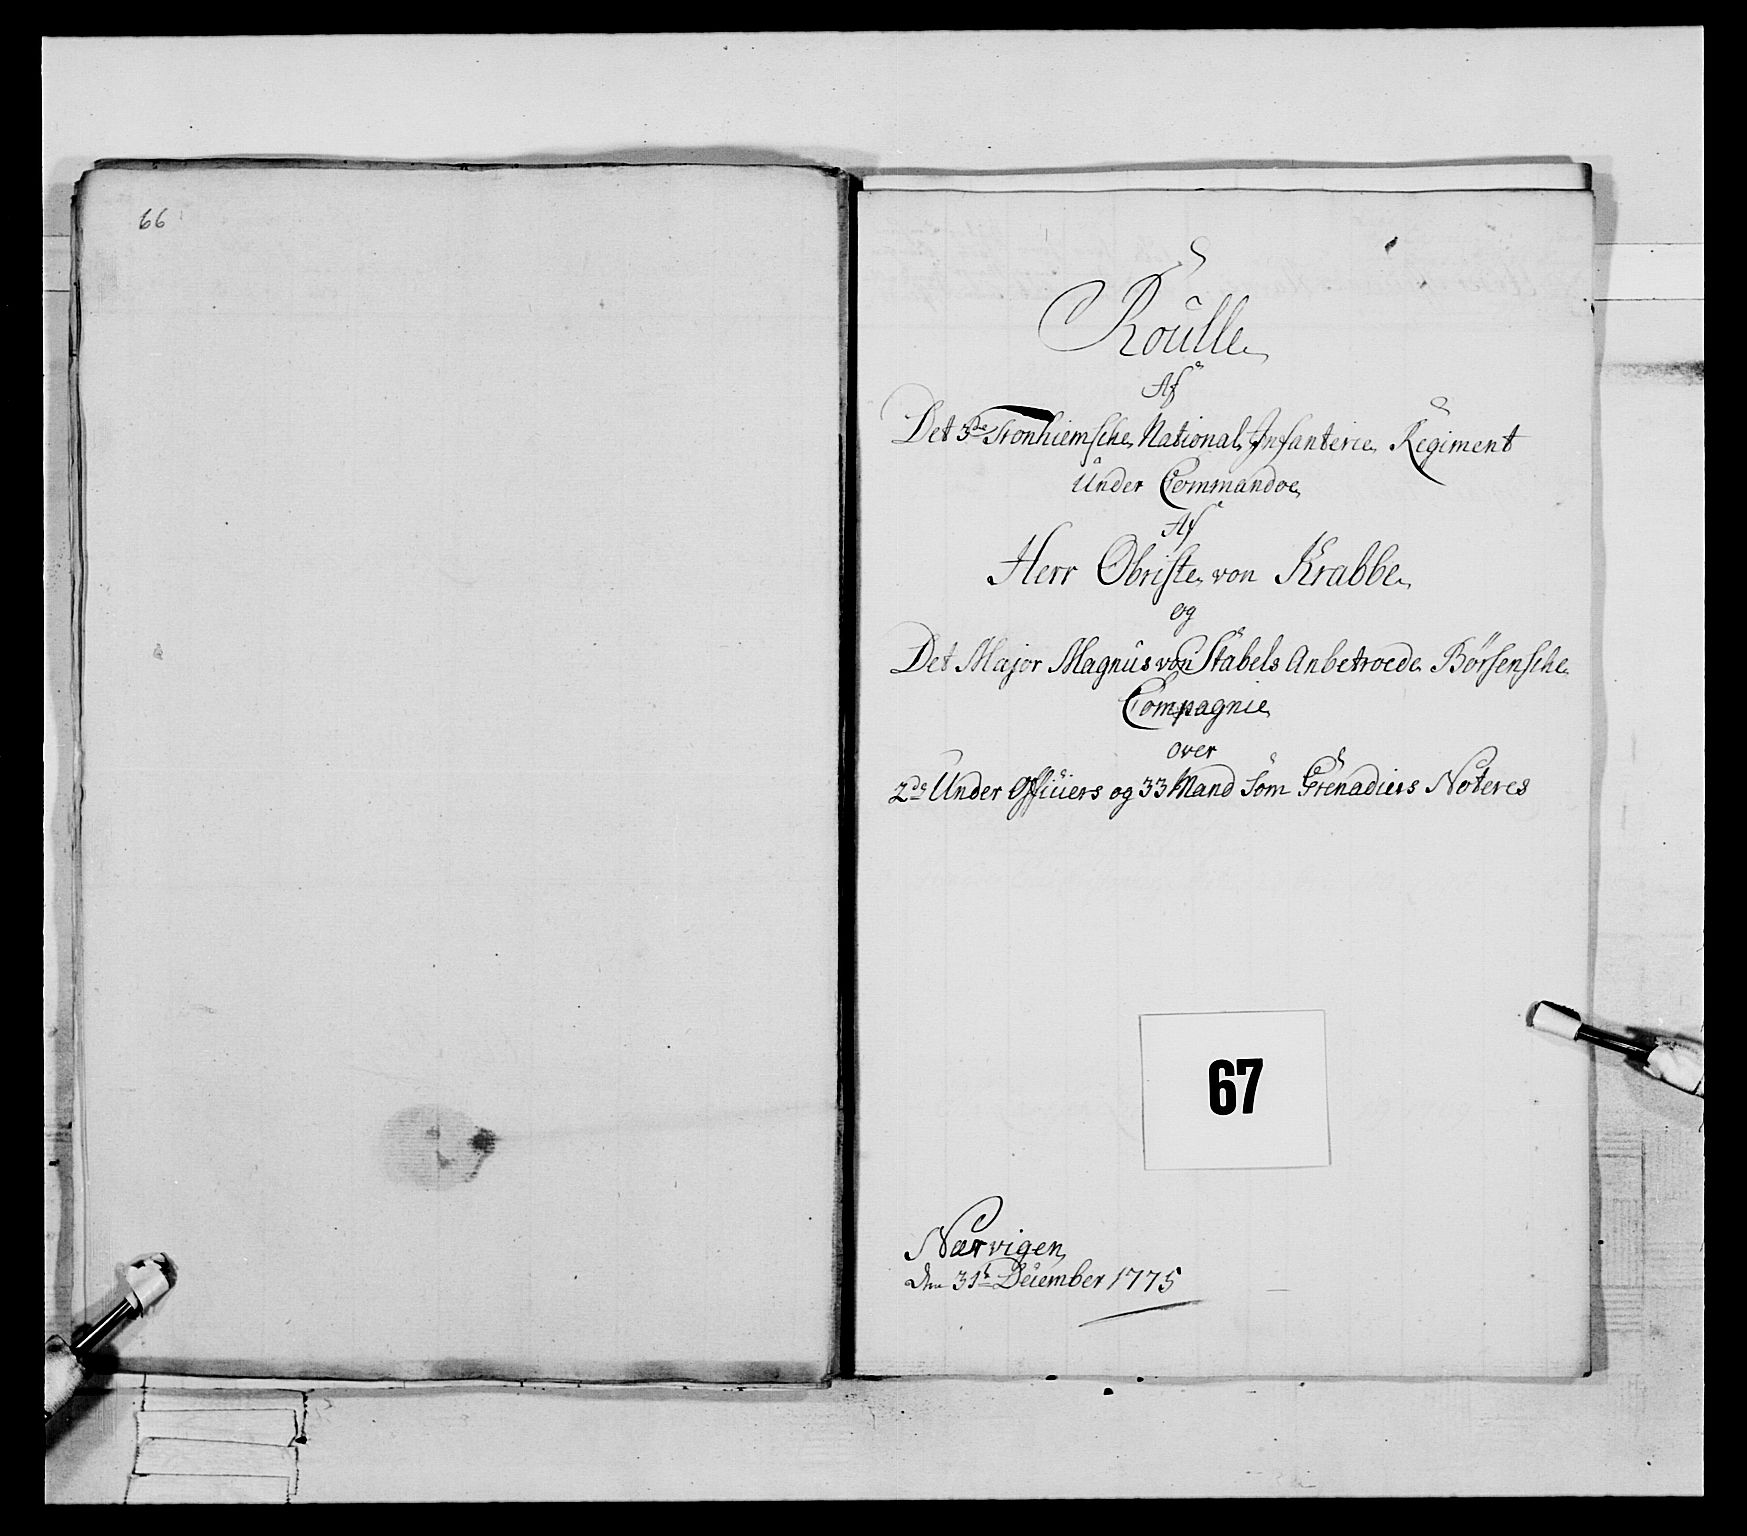 66
Roulle
Af
Det 3de Tronhiemsche National Infanterie Regiment
Under Commandoe
Af
Herr Obriste von Krabbe
og
Det Major Magnus von Stabels Anbetroede Børsensche
Compagnie
over
2de Under Officiers og 33 Mand Som Grenadiers Noteres
67
Nærvigen
den 31te December 1775